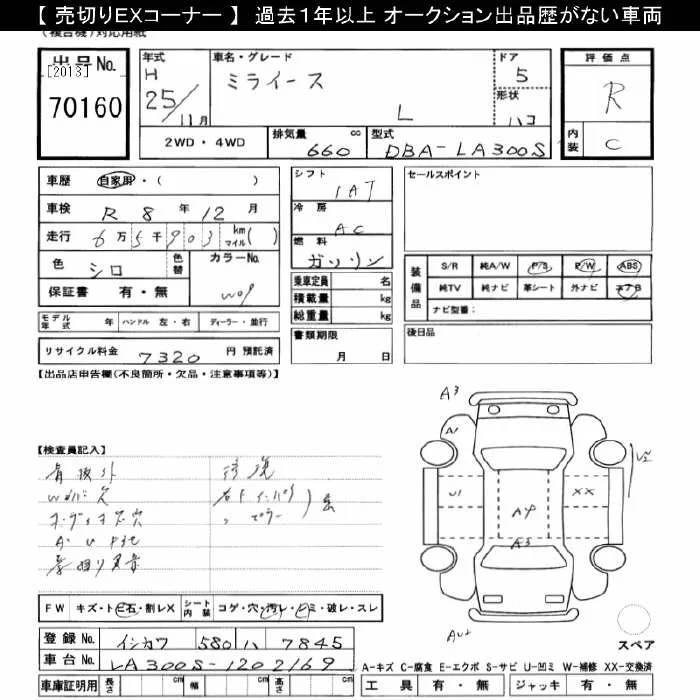 【 売切りEXコーナー 】 過去1年以上 オークション出品歴がない車両
(複合機)対応用紙
出品No.
[2013]
70160
年式
H
25/11月
車名・グレード
ミライース
L
ドア
5
形状
ハコ
評価点
R
内装
C
2WD・4WD
排気量
660
cc
型式
DBA-LA300S
車歴
自家用・( )
車検
R 8 年 12 月
走行
6万5千903 km マイル( )
色
シロ
色替
カラーNo.
W09
保証書 有・無
シフト
IAT
冷房
AC
燃料
ガソリン
乗車定員 名
積載量 kg
総重量 kg
セールスポイント
装備品
S/R 純A/W P/S P/W ABS
純TV 純ナビ 革シート 外ナビ エアB
ナビ型番:
モデル年式 年 ハンドル 左・右 ディーラー・並行
リサイクル料金 7320 円 預託済
書類期限
月 日
後日品
【出品店申告欄(不良箇所・欠品・注意事項等)】
【検査員記入】
A3
A1
U1
XX
A4
A3
FW キズ・トビ石・割レX
シート内装 コゲ・穴・汚レ・シミ・破レ・スレ
登録No. イシカワ 580 ハ 7845
車台No. LA300S-1202169
スペア
A-キズ C-腐食 E-エクボ S-サビ U-凹ミ W-補修 XX-交換済
車庫証明用 長さ cm 幅 cm 高さ cm
工具 有・無 ジャッキ 有・無